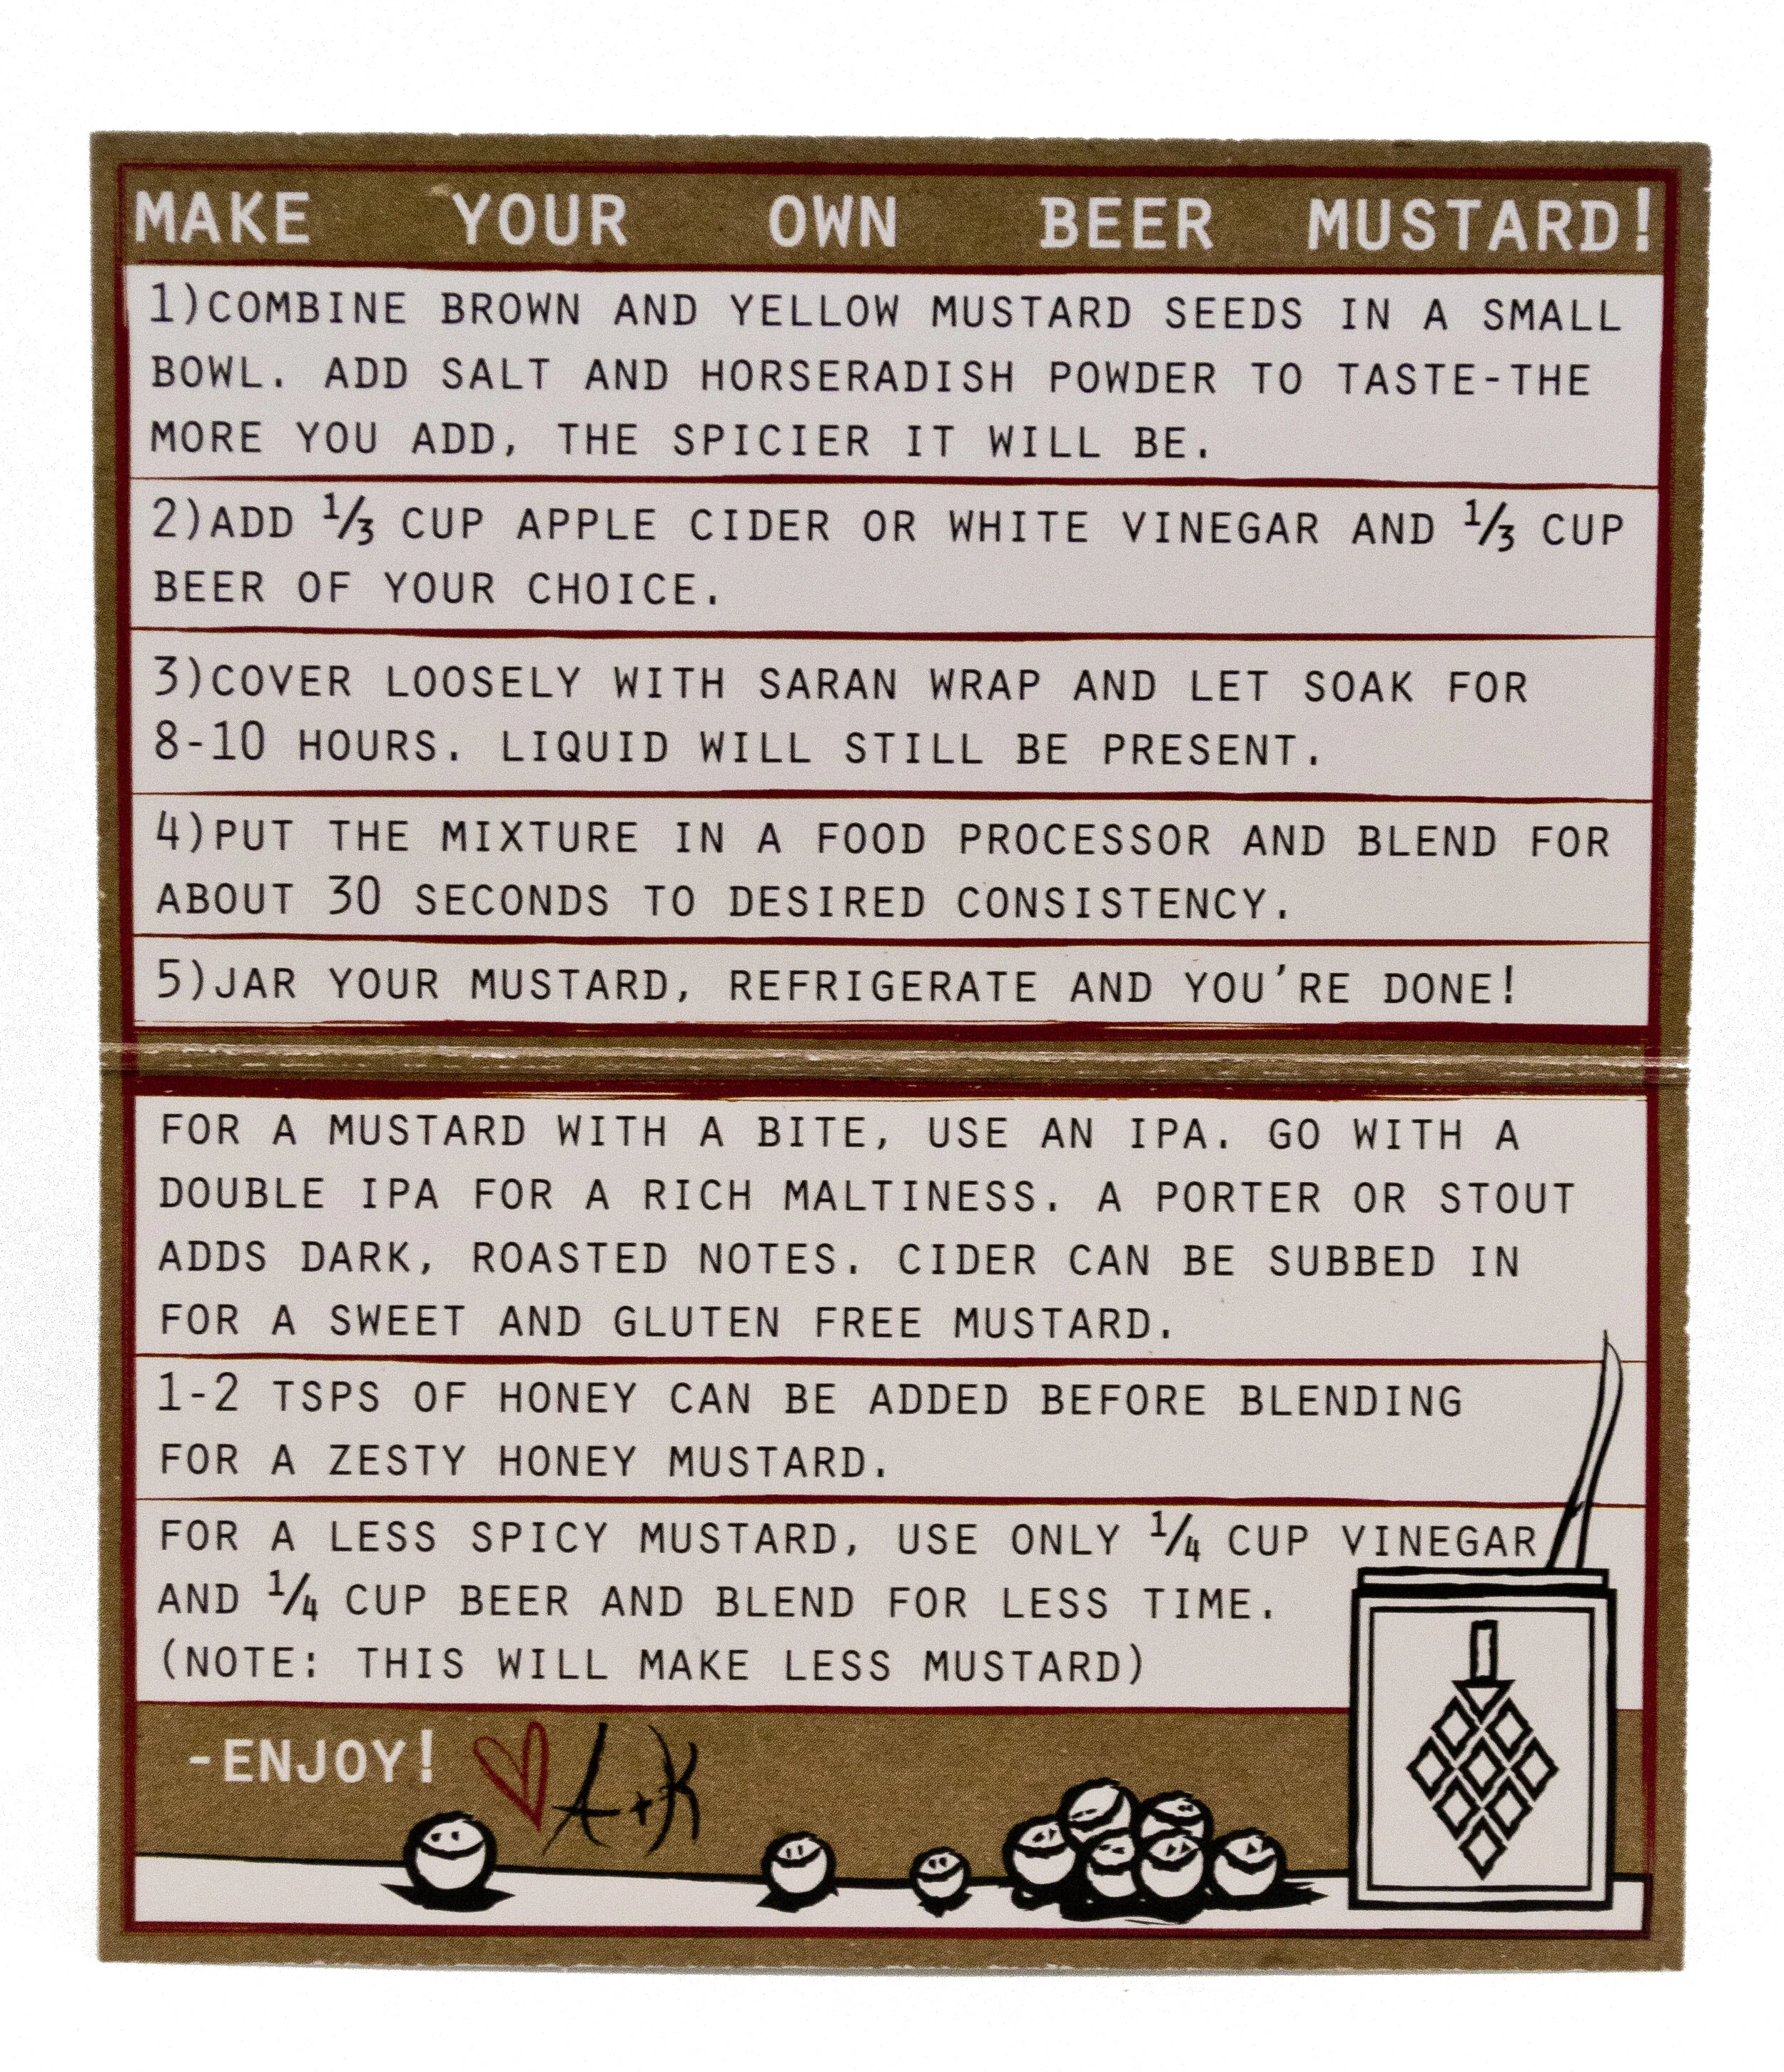 MAKE YOUR OWN BEER MUSTARD!
1)COMBINE BROWN AND YELLOW MUSTARD SEEDS IN A SMALL
BOWL. ADD SALT AND HORSERADISH POWDER TO TASTE-THE
MORE YOU ADD, THE SPICIER IT WILL BE.
2)ADD ⅓ CUP APPLE CIDER OR WHITE VINEGAR AND ⅓ CUP
BEER OF YOUR CHOICE.
3)COVER LOOSELY WITH SARAN WRAP AND LET SOAK FOR
8-10 HOURS. LIQUID WILL STILL BE PRESENT.
4)PUT THE MIXTURE IN A FOOD PROCESSOR AND BLEND FOR
ABOUT 30 SECONDS TO DESIRED CONSISTENCY.
5)JAR YOUR MUSTARD, REFRIGERATE AND YOU'RE DONE!
FOR A MUSTARD WITH A BITE, USE AN IPA. GO WITH A
DOUBLE IPA FOR A RICH MALTINESS. A PORTER OR STOUT
ADDS DARK, ROASTED NOTES. CIDER CAN BE SUBBED IN
FOR A SWEET AND GLUTEN FREE MUSTARD.
1-2 TSPS OF HONEY CAN BE ADDED BEFORE BLENDING
FOR A ZESTY HONEY MUSTARD.
FOR A LESS SPICY MUSTARD, USE ONLY ¼ CUP VINEGAR
AND ¼ CUP BEER AND BLEND FOR LESS TIME.
(NOTE: THIS WILL MAKE LESS MUSTARD)
-ENJOY! A+K